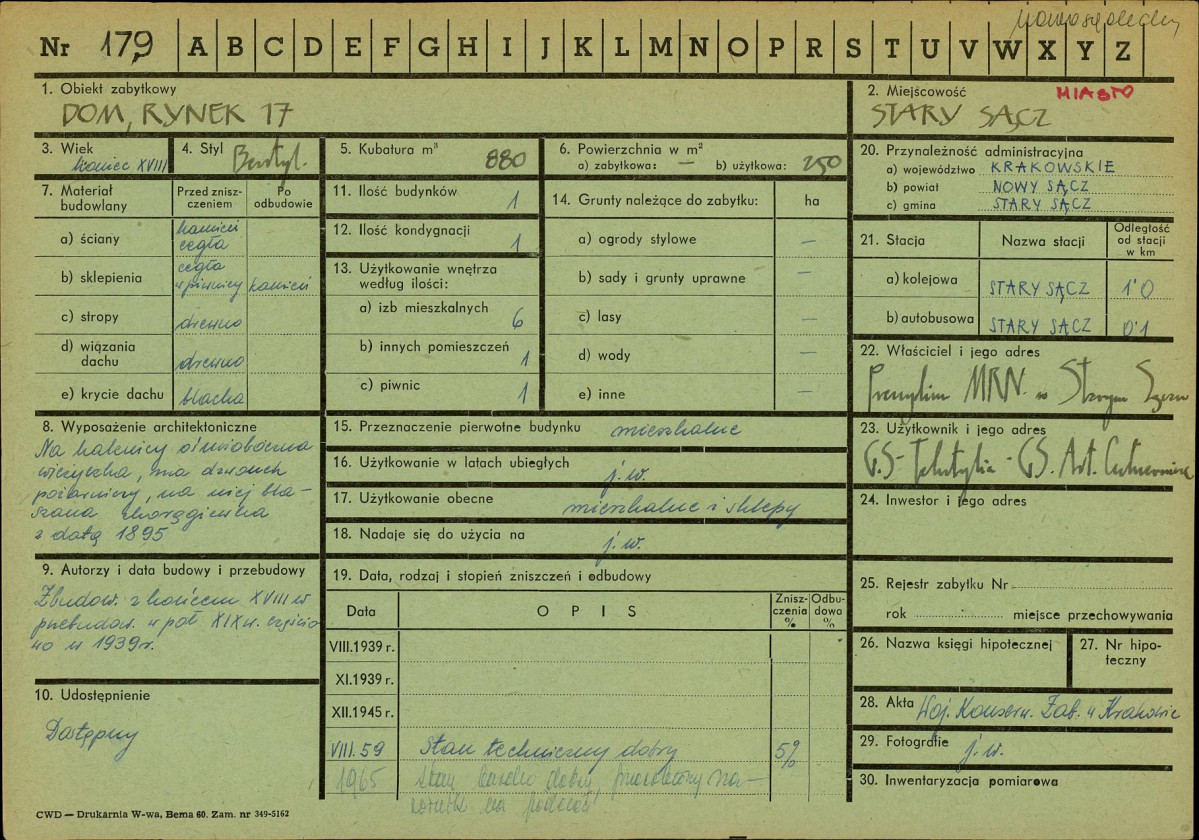 Nowosądeckie
Nr 179 A B C D E F G H I J K L M N O P R S T U V W X Y Z
1. Obiekt zabytkowy
DOM, RYNEK 17
2. Miejscowość MIASTO
STARY SĄCZ
3. Wiek
koniec XVIII
4. Styl Bezstyl.
5. Kubatura m³ 880
6. Powierzchnia w m²
a) zabytkowa: — b) użytkowa: 250
20. Przynależność administracyjna
a) województwo KRAKOWSKIE
b) powiat NOWY SĄCZ
c) gmina STARY SĄCZ
7. Materiał budowlany
Przed zniszczeniem
Po odbudowie
a) ściany kamień cegła
b) sklepienia cegła w piwnicy kamień
c) stropy drewno
d) wiązania dachu drewno
e) krycie dachu blacha
11. Ilość budynków 1
12. Ilość kondygnacji 1
13. Użytkowanie wnętrza
według ilości:
a) izb mieszkalnych 6
b) innych pomieszczeń 1
c) piwnic 1
14. Grunty należące do zabytku: ha
a) ogrody stylowe —
b) sady i grunty uprawne —
c) lasy —
d) wody —
e) inne —
21. Stacja Nazwa stacji Odległość od stacji w km
a) kolejowa STARY SĄCZ 1'0
b) autobusowa STARY SĄCZ 0'1
22. Właściciel i jego adres
Prezydium MRN. w Starym Sączu
23. Użytkownik i jego adres
G.S- Tekstylia - GS. Art.
24. Inwestor i jego adres
8. Wyposażenie architektoniczne
Na kalenicy ośmioboczna
wieżyczka, ma dzwonek
pożarniczy, na niej bla-
szana chorągiewka
z datą 1895
9. Autorzy i data budowy i przebudowy
Zbudow. z końcem XVIII w
przebudow. w poł XIX w. częścio
wo w 1939r.
10. Udostępnienie
Dostępny
15. Przeznaczenie pierwotne budynku mieszkalne
16. Użytkowanie w latach ubiegłych
j.w.
17. Użytkowanie obecne
mieszkalne i sklepy
18. Nadaje się do użycia na
j.w.
19. Data, rodzaj i stopień zniszczeń i odbudowy
Data OPIS Zniszczenia % Odbudowa %
VIII.1939 r.
XI.1939 r.
XII.1945 r.
VIII.59 Stan techniczny dobry 5%
1965 Stan bardzo dobry,
25. Rejestr zabytku Nr
rok miejsce przechowywania
26. Nazwa księgi hipotecznej
27. Nr hipoteczny
28. Akta Woj. Konserw. Zab. w Krakowie
29. Fotografie j.w.
30. Inwentaryzacja pomiarowa
CWD — Drukarnia W-wa, Bema 60. Zam. nr 349-5162